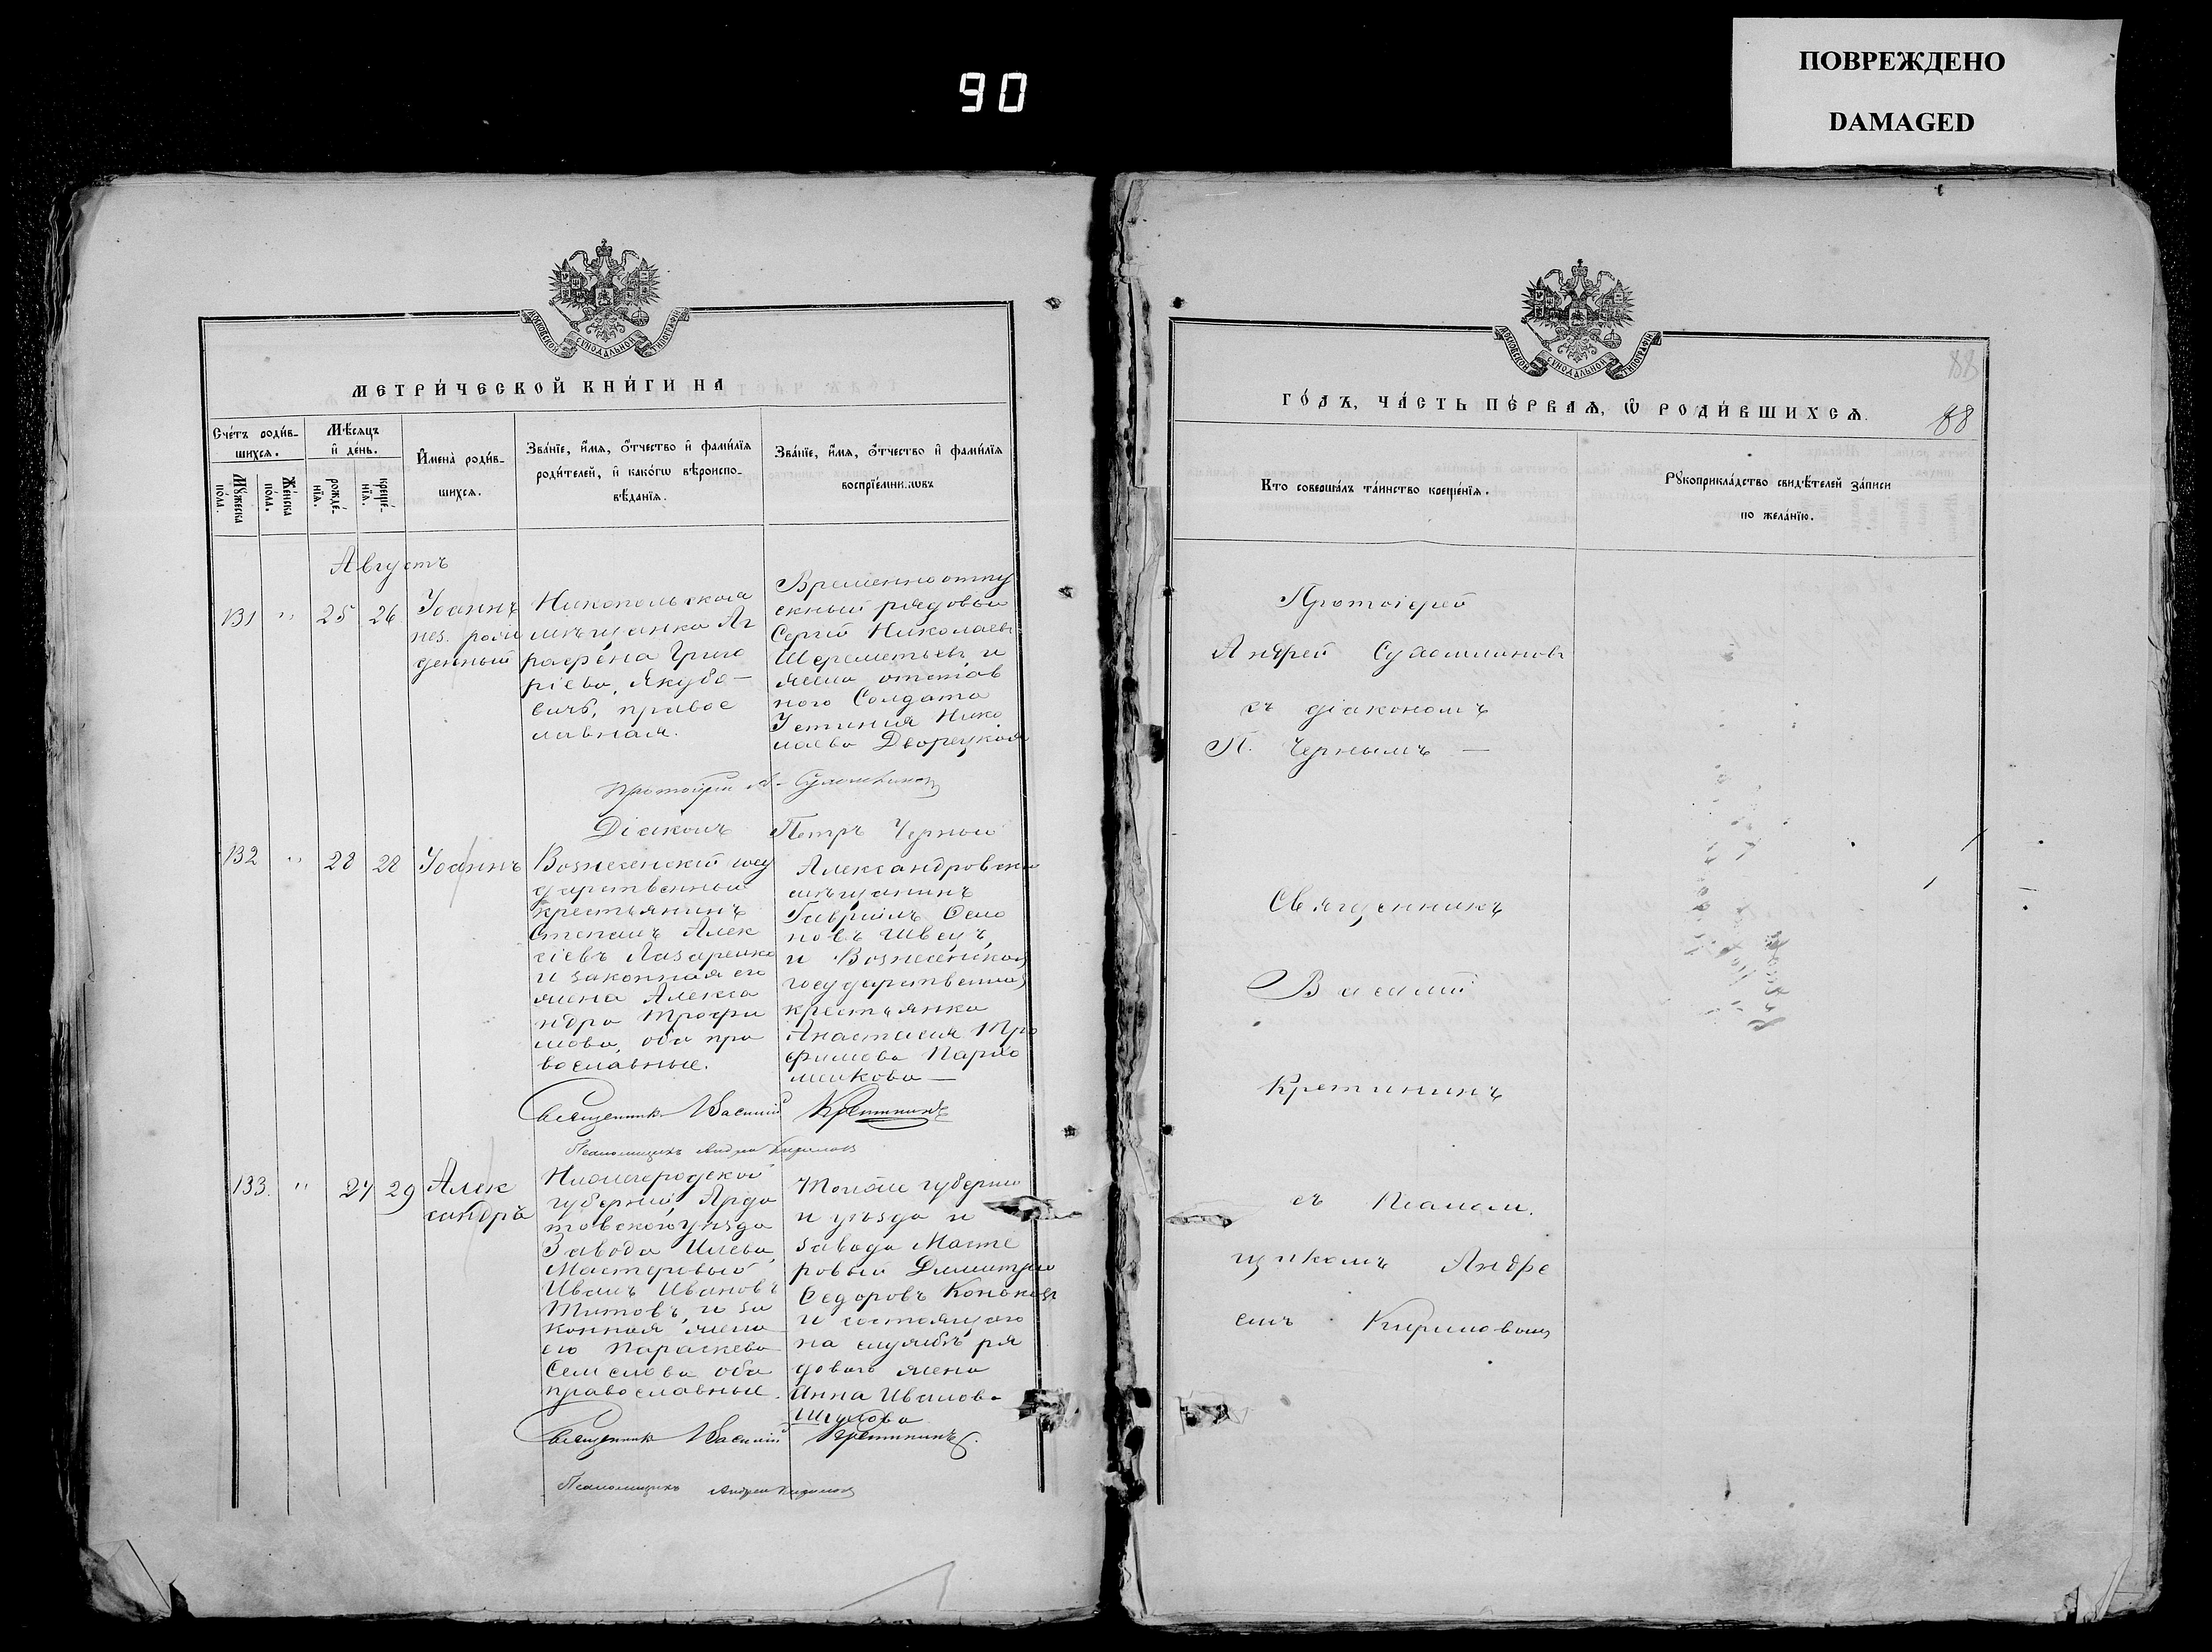 90
ПОВРЕЖДЕНО
DAMAGED
МОСКОВСКОЙ СѴНОДАЛЬНОЙ ТИПОГРАФІИ
МЕТРИ́ЧЕСКОЙ КНИ́ГИ НА
Сче́тъ роди́в-
шихсѧ.
Мѣ́сѧцъ
и҆ де́нь.
И҆мена̀ роди́в-
шихсѧ.
Зва́нїе, и҆́мѧ, ѻ҆́тчество и҆ фами́лїѧ
роди́телей, и҆ како́гѡ вѣроиспо-
вѣ́данїѧ.
Зва́нїе, и҆́мѧ, ѻ҆́тчество и҆ фами́лїѧ
воспрїе́мниковъ
Мꙋ́жеска
по́ла.
Же́нска
по́ла.
рожде́-
нїѧ.
креще́-
нїѧ.
Августъ
131 " 25 26
Іоаннъ
нез. рож
денный
Никопольская
мѣщанка Аг
рафена Григо
ріева, Якубо-
вичъ, правос
лавная.
Временноотпу
скный рядовый
Сергій Николаевъ
Шереметьевъ, и
жена отстав
ного Солдата
Устинія Нико
лаева Дворецкая
Протоіерей А. Суломиновъ
Діаконъ Петръ Черный
132 " 28 28
Іоаннъ
Вознесенскій госу
дарственный
крестьянинъ
Степанъ Алек
сіевъ Лазаренко
и законная его
жена Алекса
ндра Трофи
мова, оба пра
вославные.
Александровскій
мѣщанинъ
Гавріилъ Семо
новъ Швецъ,
и Вознесенская
государственная
крестьянка
Анастасія Тро
фимова Пархо
менкова —
Священникъ Василій Кретининъ
Псаломщикъ Андрей Кириловъ
133. " 27 29
Алек
сандръ
Нижегородской
губерніи, Арда
товского уѣзда
Завода Илева,
Мастеровый
Иванъ Ивановъ
Титовъ, и за
конная жена
его Параскева
Семенова оба
православные.
Той же губерніи
и уѣзда и
завода Масте
ровый Димитрій
Федоровъ Коньковъ
и состоящаго
на службѣ ря
довагo жена
Анна Иванов-
Священникъ Василій Кретининъ.
Псаломщикъ Андрей Кириловъ
МОСКОВСКОЙ СѴНОДАЛЬНОЙ ТИПОГРАФІИ
ГО́ДЪ, ЧА́СТЬ ПЕ́РВАѦ, Ѡ҆ РОДИ́ВШИХСѦ.
88
88
Кто соверша́лъ та́инство креще́нїѧ.
Рꙋкоприкла́дство свидѣ́телей за́писи
по жела́нїю.
Протоіерей
Андрей Суломиновъ
съ діакономъ
П. Чернымъ —
Священникъ
Василій
Кретининъ
съ Псалом.
щикомъ Андре
емъ Кириловымъ